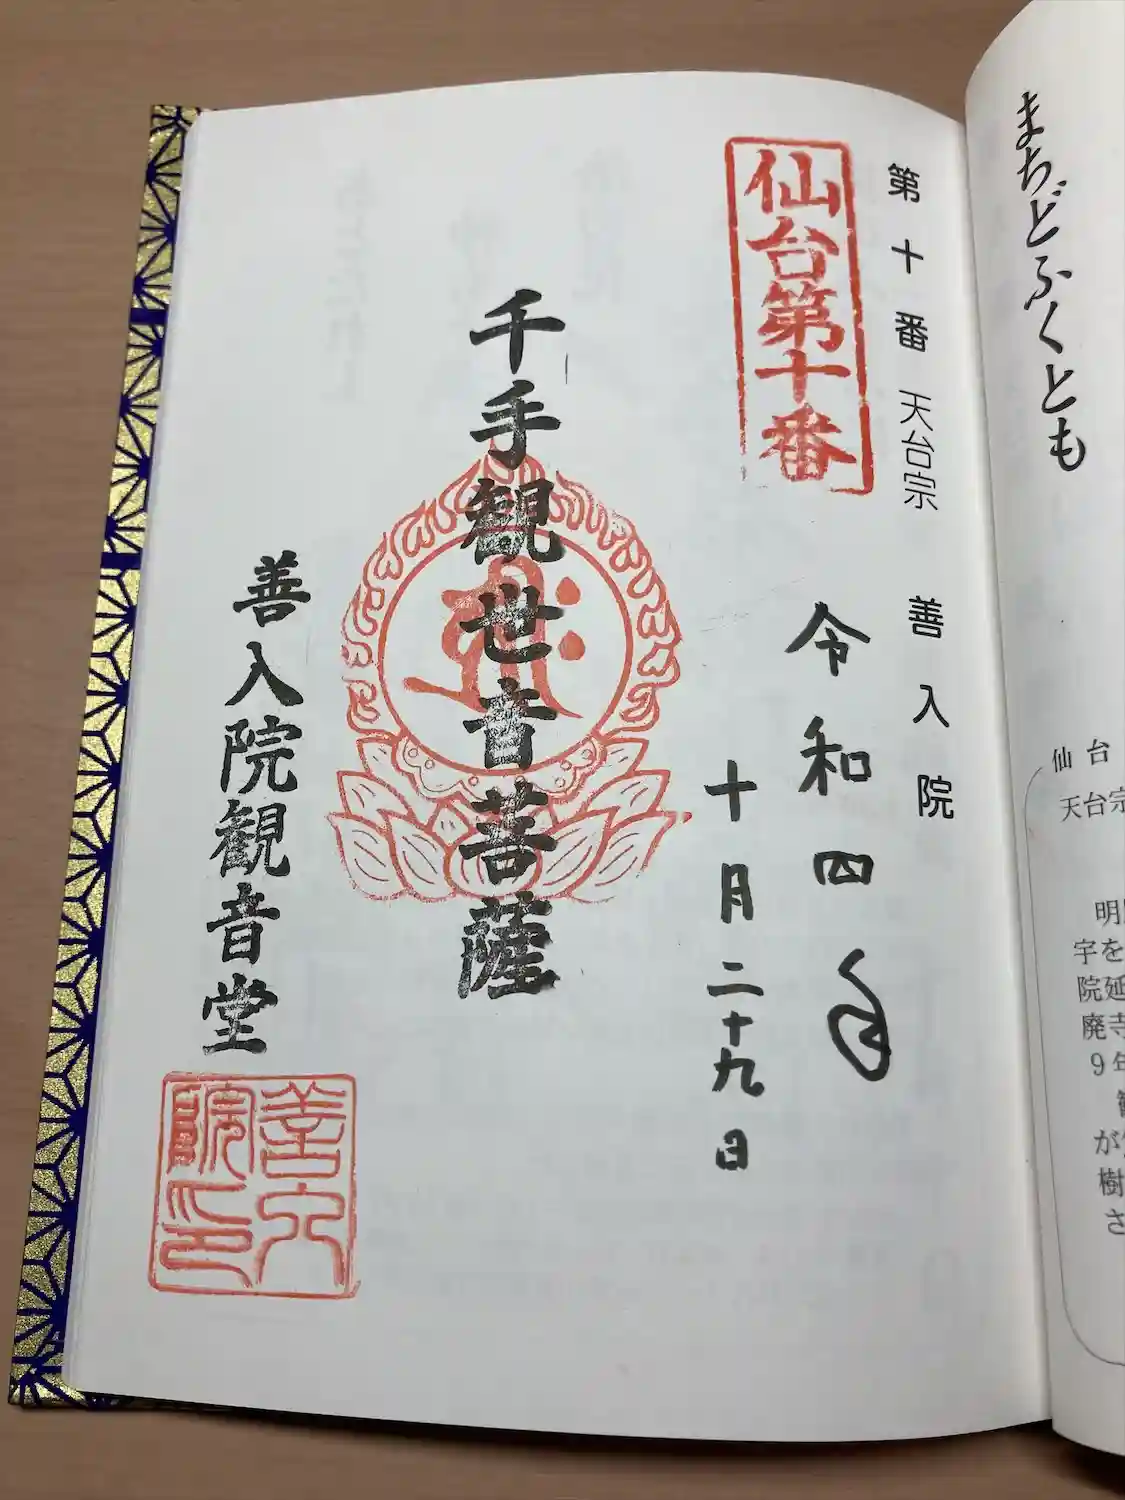 まちどふくとも
仙台
天台宗
明
宇を
院延
廃寺
9年
が
樹
さ
第十番 天台宗 善入院
仙台第十番
令和四年
十月二十九日
千手観世音菩薩
善入院観音堂
善入院印